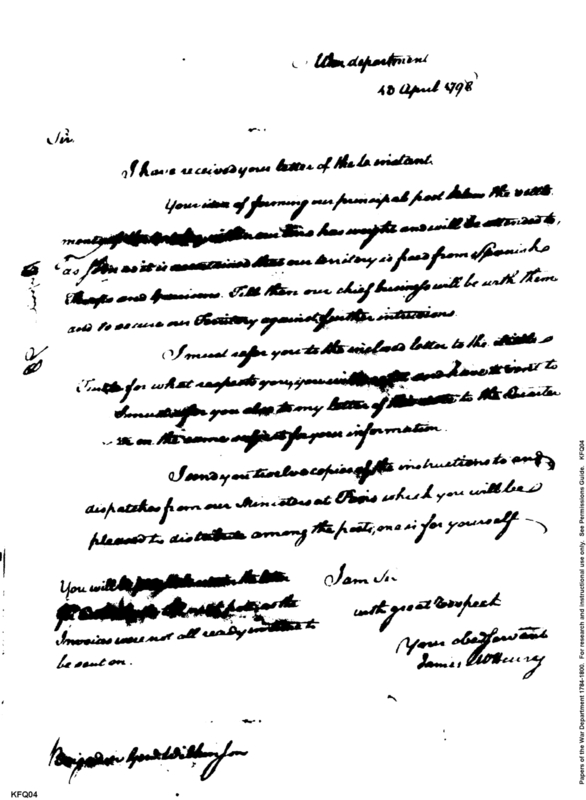 War department
April 1798
Sir.
I have received your letter of the instant.
Your idea of forming our principal post below the settle
ments has weight and will be attended to,
as soon as it is ascertained that our territory is freed from Spanish
Troops and Garrisons. Till then our chief business will be with them
and to secure our Territory against further intrusions.
I must refer you to the inclosed letter to the
for what respects you, and have to
you also to my letter of to the Quarter
on the same subject for your information.
I send you twelve copies of the instructions to and
dispatches from our Ministers at Paris which you will be
pleased to distribute among the posts, one is for yourself
I am Sir
with great respect
Your obed Servant
James McHenry
You will
as the
Invoices were not all ready to
be sent on.
Brigadier Genl. Wilkinson
KFQ04
Papers of the War Department 1784-1800. For research and instructional use only. See Permissions Guide. KFQ04